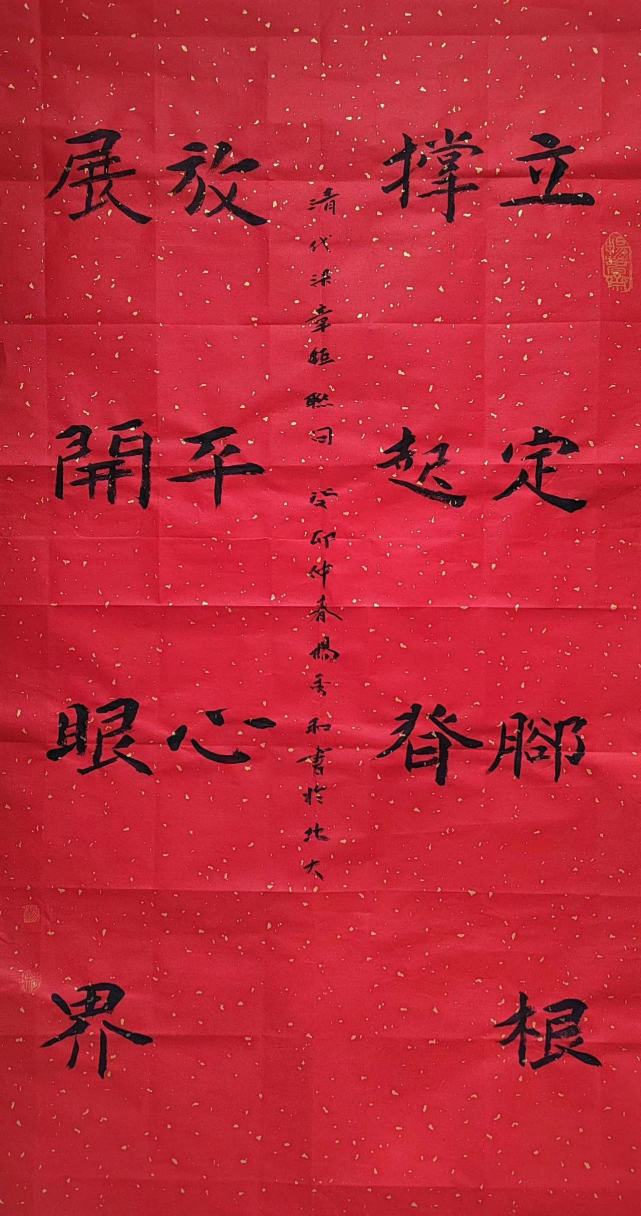 立定腳根
撐起脊
清代梁章鉅聯句 癸卯仲春楊和書於北大
展開眼界
放平心